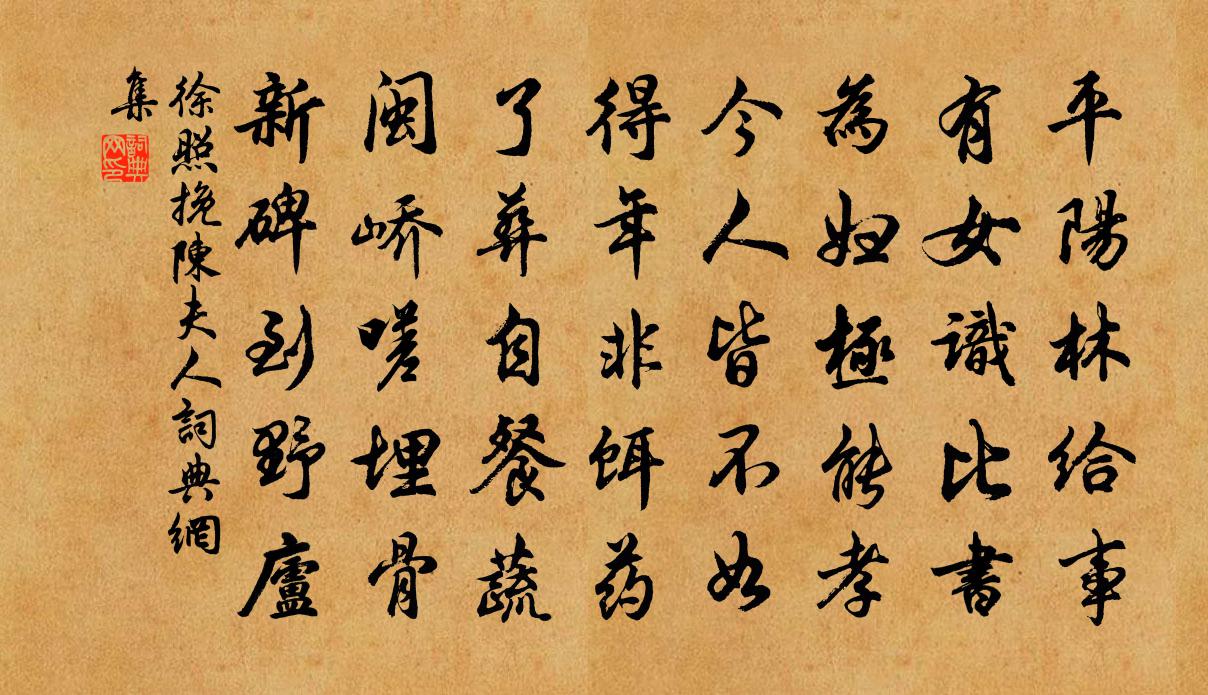 平陽林給事
有女識比書
為婦極能孝
今人皆不如
得年非餌药
了彝自餐蔬
閩嶠嗟埋骨
新碑到野廬
徐照挽陳夫人詞典網
集
詞典
网印